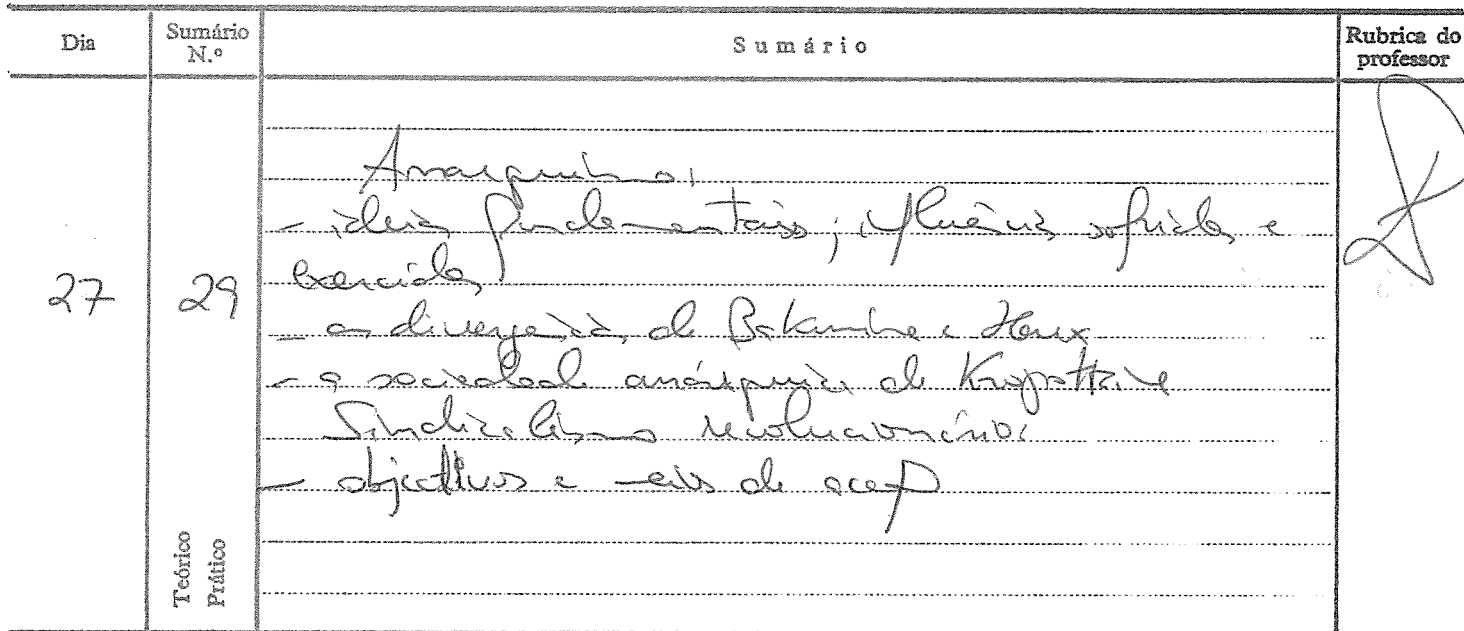 Dia
Sumário N.º
Sumário
Rubrica do professor
27
29
Anarquismo:
- ideias fundamentais; influências sofridas e
exercidas
- as divergências de Bakunine e Marx
- a sociedade anárquica de Kropotkine
Sindicalismo revolucionário:
- objectivos e meios de acção
Teórico
Prático